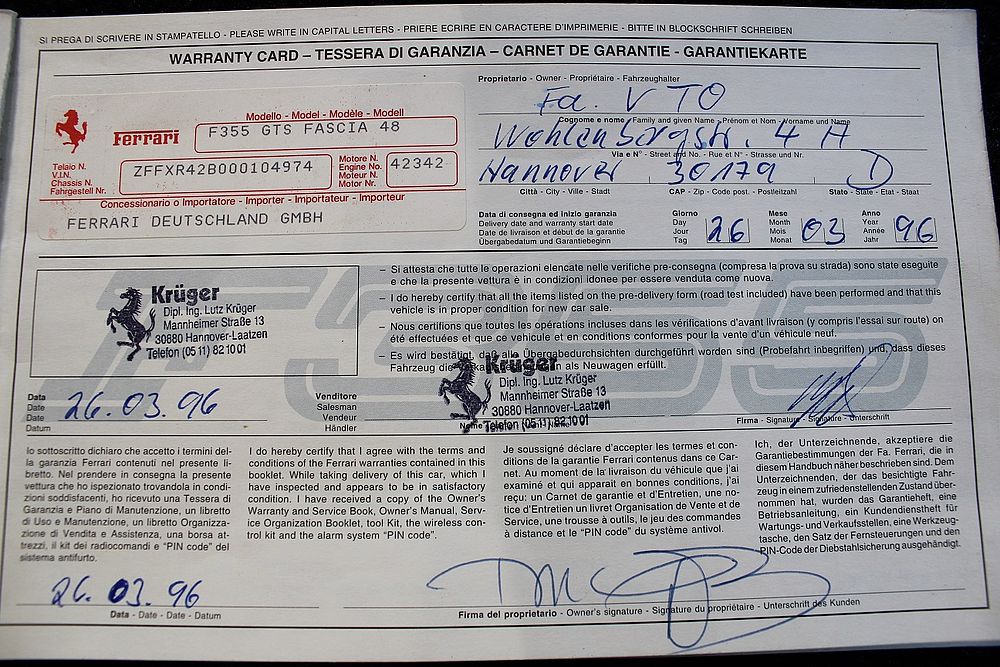 SI PREGA DI SCRIVERE IN STAMPATELLO - PLEASE WRITE IN CAPITAL LETTERS - PRIERE ECRIRE EN CARACTERE D'IMPRIMERIE - BITTE IN BLOCKSCHRIFT SCHREIBEN
WARRANTY CARD – TESSERA DI GARANZIA – CARNET DE GARANTIE - GARANTIEKARTE
Modello - Model - Modèle - Modell
Ferrari F355 GTS FASCIA 48
Telaio N.
V.I.N.
Chassis N.
Fahrgestell Nr.
ZFFXR42B000104974
Motore N.
Engine No.
Moteur N.
Motor Nr.
42342
Concessionario o Importatore - Importer - Importateur - Importeur
FERRARI DEUTSCHLAND GMBH
Proprietario - Owner - Propriétaire - Fahrzeughalter
Fa. VTO
Cognome e nome - Family and given Name - Prénom et Nom - Vorname und Name
Wohlenbergstr. 4 H
Via e N° - Street and No. - Rue et N° - Strasse und Nr.
Hannover 30179 D
Città - City - Ville - Stadt CAP - Zip - Code post. - Postleitzahl Stato - State - Etat - Staat
Data di consegna ed inizio garanzia
Delivery date and warranty start date
Date de livraison et début de la garantie
Übergabedatum und Garantiebeginn
Giorno
Day
Jour
Tag
26
Mese
Month
Mois
Monat
03
Anno
Year
Année
Jahr
96
F355
Krüger
Dipl. Ing. Lutz Krüger
Mannheimer Straße 13
30880 Hannover-Laatzen
Telefon (05 11) 82 10 01
– Si attesta che tutte le operazioni elencate nelle verifiche pre-consegna (compresa la prova su strada) sono state eseguite
e che la presente vettura è in condizioni idonee per essere venduta come nuova.
– I do hereby certify that all the items listed on the pre-delivery form (road test included) have been performed and that this
vehicle is in proper condition for new car sale.
– Nous certifions que toutes les opérations incluses dans les vérifications d'avant livraison (y compris l'essai sur route) on
été effectuées et que ce vehicule et en conditions conformes pour la vente d'un véhicule neuf.
– Es wird bestätigt, daß alle Übergabedurchsichten durchgeführt worden sind (Probefahrt inbegriffen) und, dass dieses
Fahrzeug die als Neuwagen erfüllt.
Krüger
Dipl. Ing. Lutz Krüger
Mannheimer Straße 13
30880 Hannover-Laatzen
Telefon (05 11) 82 10 01
Data
Date
Date
Datum
26.03.96
Venditore
Salesman
Vendeur
Händler
Firma - Signature - Signature - Unterschrift
Io sottoscritto dichiaro che accetto i termini del-
la garanzia Ferrari contenuti nel presente li-
bretto. Nel prendere in consegna la presente
vettura che ho ispezionato trovandola in condi-
zioni soddisfacenti, ho ricevuto una Tessera di
Garanzia e Piano di Manutenzione, un libretto
di Uso e Manutenzione, un libretto Organizza-
zione di Vendita e Assistenza, una borsa at-
trezzi, il kit dei radiocomandi e "PIN code" del
sistema antifurto.
I do hereby certify that I agree with the terms and
conditions of the Ferrari warranties contained in this
booklet. While taking delivery of this car, which I
have inspected and appears to be in satisfactory
condition. I have received a copy of the Owner's
Warranty and Service Book, Owner's Manual, Serv-
ice Organization Booklet, tool Kit, the wireless con-
trol kit and the alarm system "PIN code".
Je soussigné déclare d'accepter les termes et con-
ditions de la garantie Ferrari contenus dans ce Car-
net. Au moment de la livraison du véhicule que j'ai
examiné et qui apparait en bonnes conditions, j'ai
reçu: un Carnet de garantie et d'Entretien, une no-
tice d'Entretien un livret Organisation de Vente et de
Service, une trousse à outils, le jeu des commandes
à distance et le "PIN code" du système antivol.
Ich, der Unterzeichnende, akzeptiere die
Garantiebestimmungen der Fa. Ferrari, die in
diesem Handbuch näher beschrieben sind. Dem
Unterzeichnenden, der das besichtigte Fahr-
zeug in einem zufriedenstellenden Zustand über-
nommen hat, wurden das Garantieheft, eine
Betriebsanleitung, ein Kundendienstheft für
Wartungs- und Verkaufsstellen, eine Werkzeug-
tasche, den Satz der Fernsteuerungen und den
PIN-Code der Diebstahlsicherung ausgehändigt.
26.03.96
Data - Date - Date - Datum
Firma del proprietario - Owner's signature - Signature du propriétaire - Unterschrift des Kunden